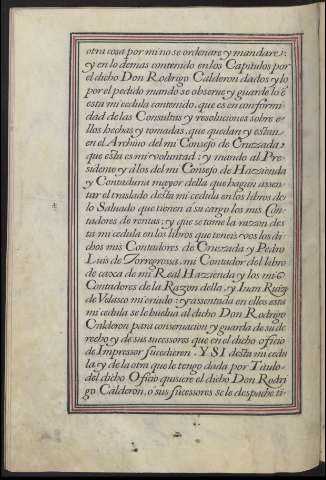 otra cosa por mi no se ordenare y mandare,
y en lo demas contenido en los Capitulos por
el dicho Don Rodrigo Calderon dados y lo
por el pedido mando se obserue y guarde lo ē
esta mi cedula contenido, que es en conformi
dad de las Consultas y resoluciones sobre e-
llos hechas y tomadas, que quedan y estan
en el Archiuo del mi Consejo de Cruzada,
que esta es mi voluntad; y mando al Pre-
sidente y a los del mi Consejo de Hazienda
y Contaduria mayor della que hagan assen-
tar el traslado desta mi cedula en los libros de
lo Saluado que tienen a su cargo los mis Con-
tadores de rentas; y que se tome la razon des
ta mi cedula en los libros que teneis vos los di
chos mis Contadores de Cruzada y Pedro
Luis de Torregrosa, mi Contador del libro
de caxa de mi Real Hazienda y los mis
Contadores de la Razon della, y Iuan Ruiz
de Velasco mi criado; y assentada en ellos esta
mi cedula se le buelua al dicho Don Rodrigo
Calderon para conseruacion y guarda de su de
recho y de sus sucessores que en el dicho oficio
de Impressor sucedieren. Y SI desta mi cedu
la, y de la otra que le tengo dada por Titulo
del dicho Oficio quisiere el dicho Don Rodri
go Calderon, o sus sucessores se le despache ti-